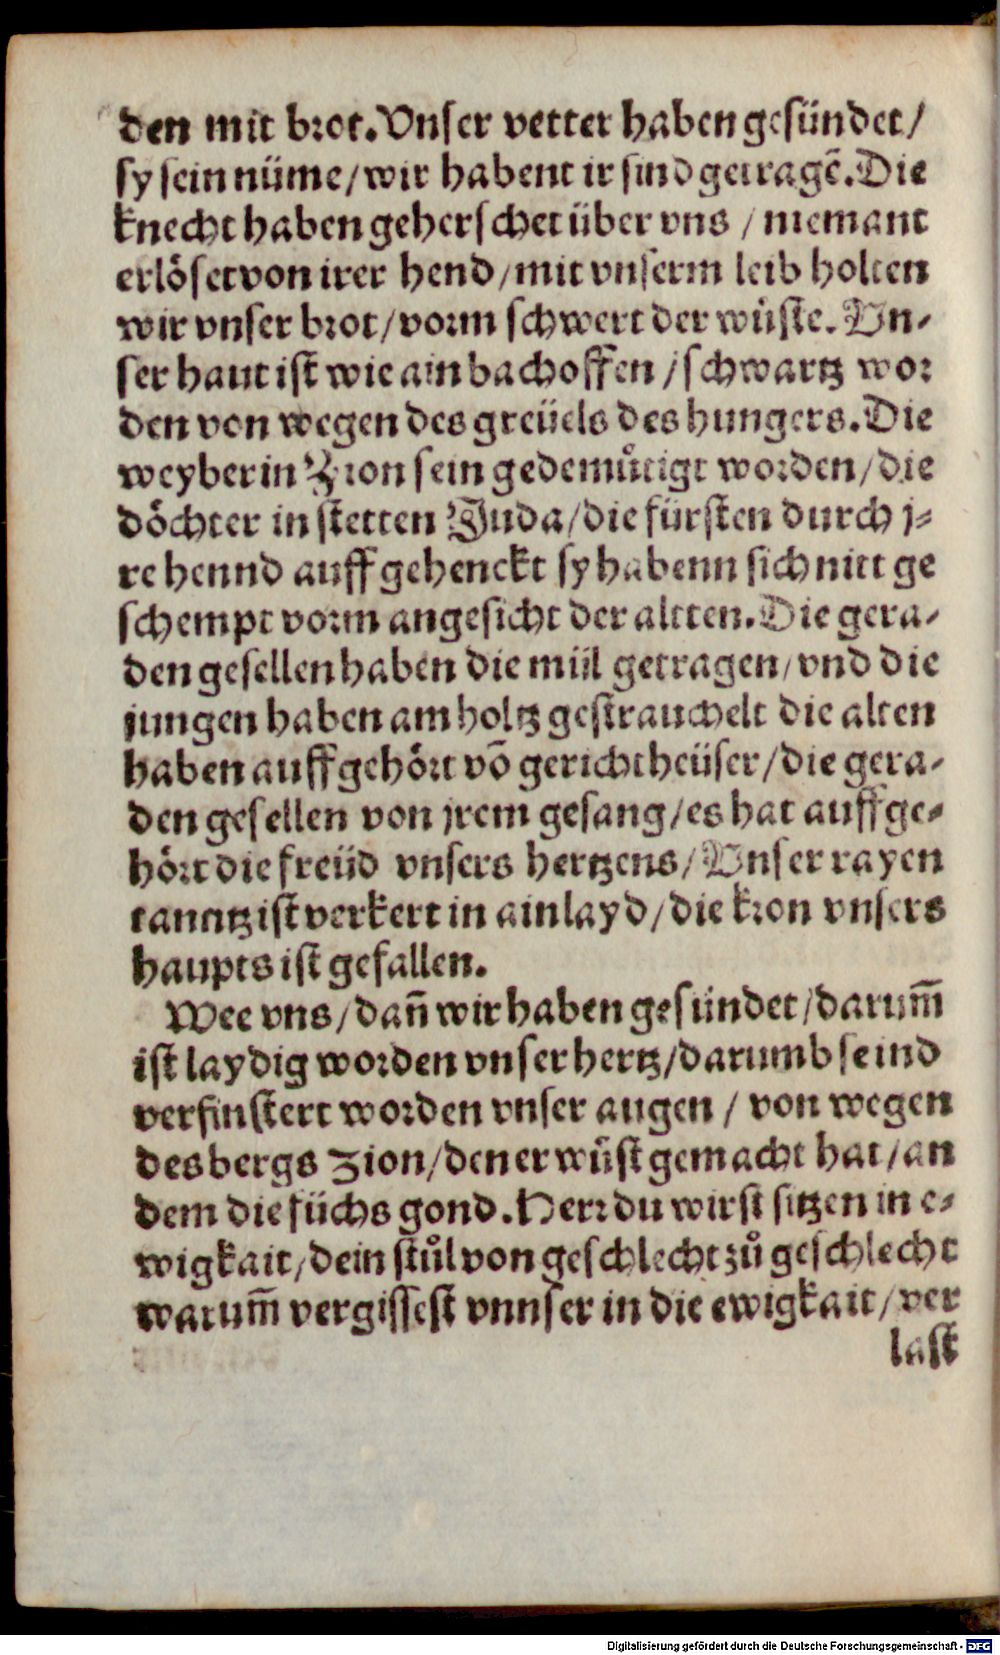 den mit brot. Vnser vetter haben gesündet /
sy sein nüme / wir habent ir sind getragē. Die
knecht haben geherschet über vns / niemant
erlöset von irer hend / mit vnserm leib holten
wir vnser brot / vorm schwert der wůste. Vn-
ser haut ist wie ain bachoffen / schwartz wor
den von wegen des greüels des hungers. Die
weyber in Zion sein gedemůtigt worden / die
döchter in stetten Juda / die fürsten durch j-
re hennd auff gehenckt sy habenn sich nitt ge
schempt vorm angesicht der altten. Die gera-
den gesellen haben die mül getragen / vnd die
jungen haben am holtz gestrauchelt die alten
haben auff gehört vō gericht heüser / die gera-
den gesellen von jrem gesang / es hat auff ge-
hört die freüd vnsers hertzens / Vnser rayen
tanntz ist verkert in ain layd / die kron vnsers
haupts ist gefallen.
Wee vns / dañ wir haben gesündet / darum̄
ist laydig worden vnser hertz / darumb seind
verfinstert worden vnser augen / von wegen
des bergs Zion / den er wůst gemacht hat / an
dem die füchs gond. Herr du wirst sitzen in e-
wigkait / dein stůl von geschlecht zů geschlecht
warum̄ vergissest vnnser in die ewigkait / ver
last
Digitalisierung gefördert durch die Deutsche Forschungsgemeinschaft - DFG